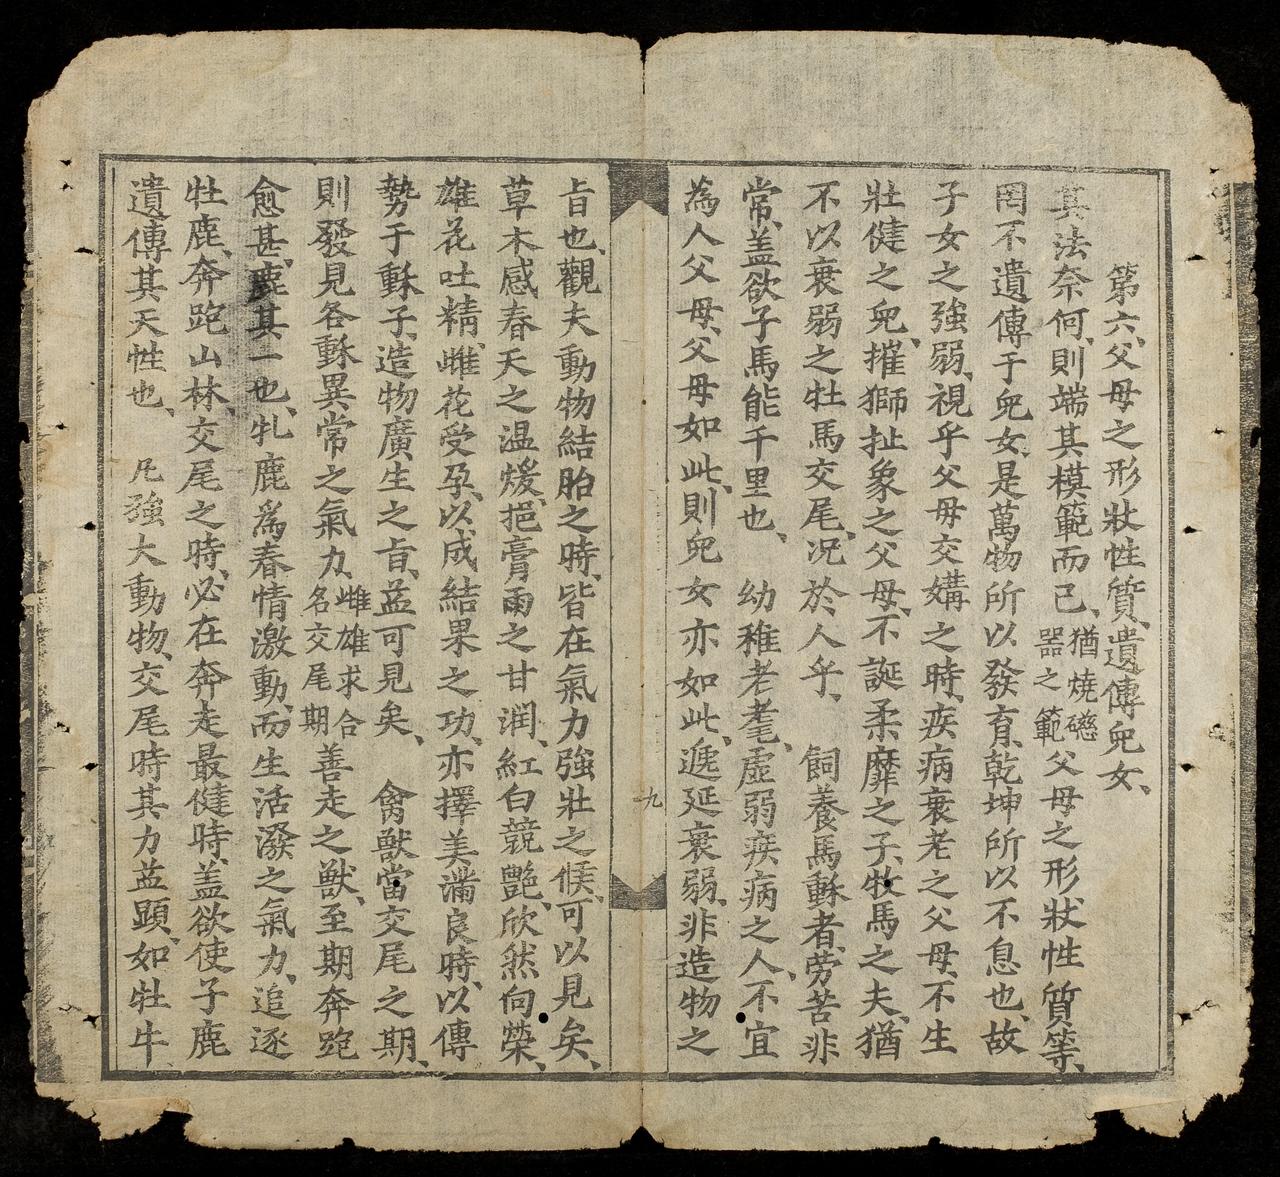 第六、父母之形狀性質、遺傳兒女、
其法奈何、則端其模範而已、猶燒磁器之範父母之形狀性質等、
罔不遺傳于兒女、是萬物所以發育、乾坤所以不息也、故
子女之強弱、視乎父母交媾之時、疾病衰老之父母、不生
壯健之兒、摧獅扯象之父母、不誕柔靡之子、牧馬之夫、猶
不以衰弱之牡馬交尾、况於人乎、飼養馬穌者、劳苦非
常、盖欲子馬能千里也、幼稚老耄、虛弱疾病之人、不宜
為人父母、父母如此、則兒女亦如此、遞延衰弱、非造物之
九
旨也、觀夫動物結胎之時、皆在氣力強壯之候、可以見矣、
草木感春天之温煖、挹膏雨之甘潤、紅白競艷、欣然向榮、
雄花吐精、雌花受孕、以成結果之功、亦擇美滿良時、以傳
勢于穌子、造物廣生之旨、益可見矣、禽獸當交尾之期、
則發見各穌異常之氣力、雌雄求合名交尾期善走之獸、至期奔跑
愈甚、鹿其一也、牝鹿為春情激動、而生活潑之氣力、追逐
牡鹿、奔跑山林、交尾之時、必在奔走最健時、盖欲使子鹿
遺傳其天性也、凡強大動物、交尾時其力益顕、如牡牛